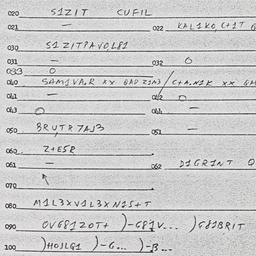 020 S1ZIT CUFIL
021 — 022 KAL1KO, C+1T G
030 S1 ZITPAVOL81
031 — 032 O
033 O
040 SAM1VA.R XX GAD Z1A3 / C+A.N1K XX GA
041 — 042 O
043 O 044 —
050 BRUTR7AJ3 051 —
060 Z+E5R
061 — 062 D1GR1NT O
070
080 M1L3XV1L3XN1S+T
090 OVG81ZO T+ )-G81V... )G81BRIT
100 )HOJLG1 )-G... )-B...